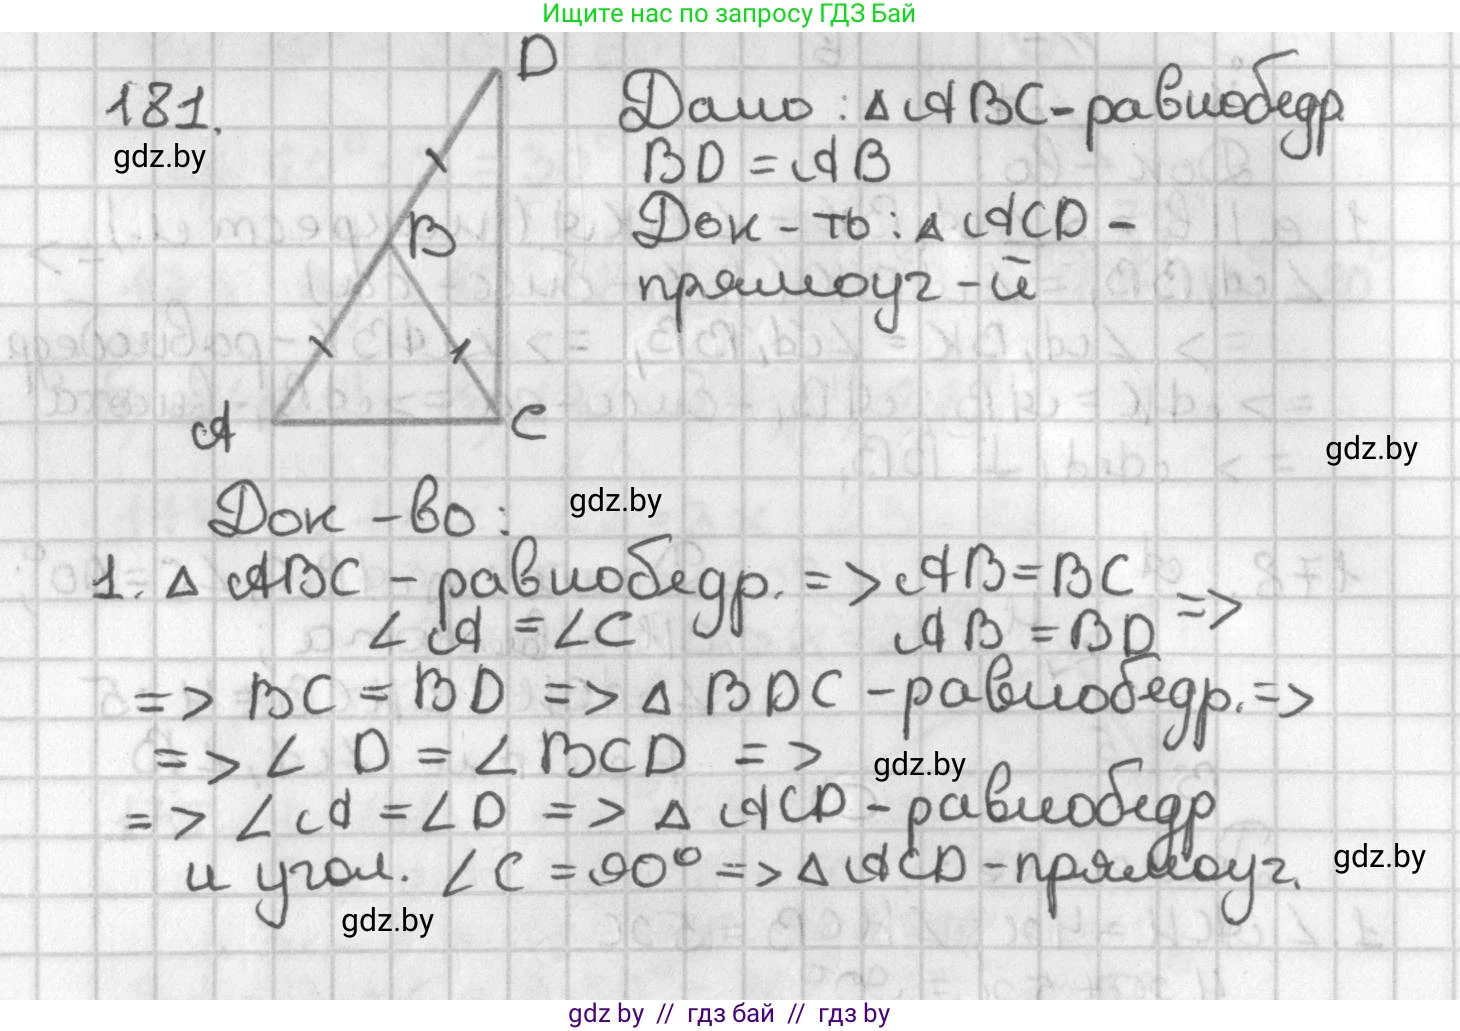 Ищите нас по запросу ГДЗ Бай
181.
gdz.by
D
B
A
C
Дано : △ ABC - равнобедр.
BD = AB
Док - ть : △ ACD -
прямоуг - й
gdz.by
Док - во :
gdz.by
1. △ ABC - равнобедр. => AB = BC
∠A = ∠C AB = BD =>
=> BC = BD => △ BDC - равнобедр. =>
=> ∠ D = ∠ BCD =>
gdz.by
=> ∠A = ∠D => △ ACD - равнобедр
и угол. ∠C = 90° => △ ACD - прямоуг.
gdz.by
gdz.by
gdz.by // гдз бай // гдз by